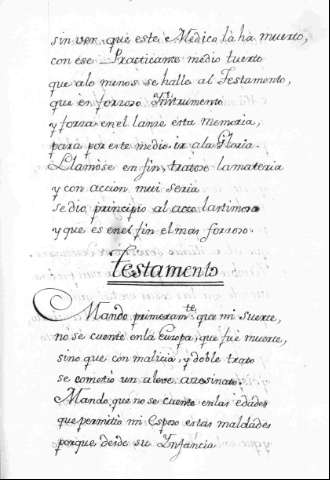 sin ver, que este Medico la ha muerto,
con ese Practicante medio tuerto
que alo menos se halle al Testamento,
que en forzoso Instrumento
y forza en el lanze esta memoria,
para por este medio ir a la Gloria.
Llamòse en fin, tratòse la materia
y con acción mui seria
se dio principio al acto lastimoso
y que es en el fin el mas forzoso.
Testamento
Mando primeram.te que mi Suerte,
no se cuente enla Europa, que fue muerte,
sino que con malicia, y doble trato
se cometio un aleve asesinato:
Mando que no se cuente en las edades
que permitio mi Esposo estas maldades
porque desde su Infancia